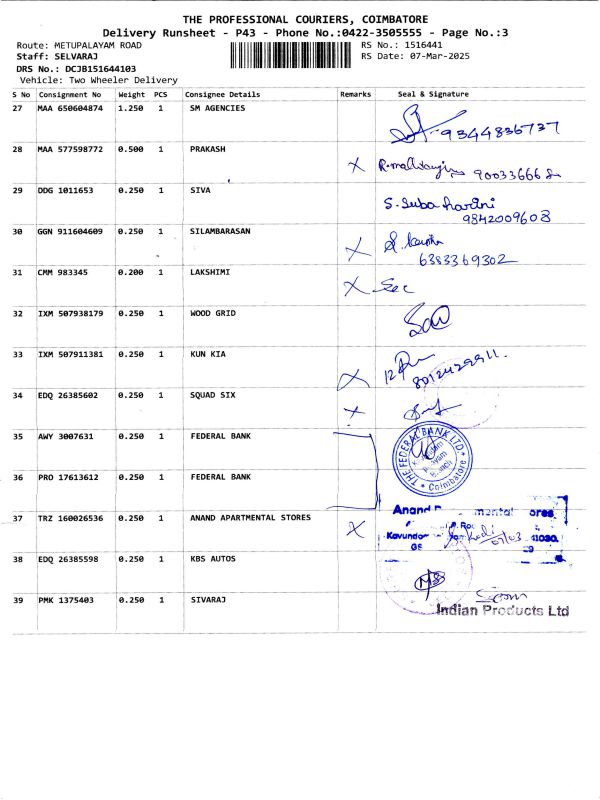 THE PROFESSIONAL COURIERS, COIMBATORE
Delivery Runsheet - P43 - Phone No.:0422-3505555 - Page No.:3
Route: METUPALAYAM ROAD RS No.: 1516441
Staff: SELVARAJ RS Date: 07-Mar-2025
DRS No.: DCJB151644103
Vehicle: Two Wheeler Delivery
S No Consignment No Weight PCS Consignee Details Remarks Seal & Signature
27 MAA 650604874 1.250 1 SM AGENCIES 9344836737
28 MAA 577598772 0.500 1 PRAKASH X
29 DDG 1011653 0.250 1 SIVA S. Suba harini
9842009608
30 GGN 911604609 0.250 1 SILAMBARASAN X
6383369302
31 CMM 983345 0.200 1 LAKSHIMI X Sec
32 IXM 507938179 0.250 1 WOOD GRID
33 IXM 507911381 0.250 1 KUN KIA X
34 EDQ 26385602 0.250 1 SQUAD SIX X
35 AWY 3007631 0.250 1 FEDERAL BANK THE FEDERAL BANK LTD.
Coimbatore
36 PRO 17613612 0.250 1 FEDERAL BANK
37 TRZ 160026536 0.250 1 ANAND APARTMENTAL STORES X Anand
07/03
38 EDQ 26385598 0.250 1 KBS AUTOS
39 PMK 1375403 0.250 1 SIVARAJ
Indian Products Ltd